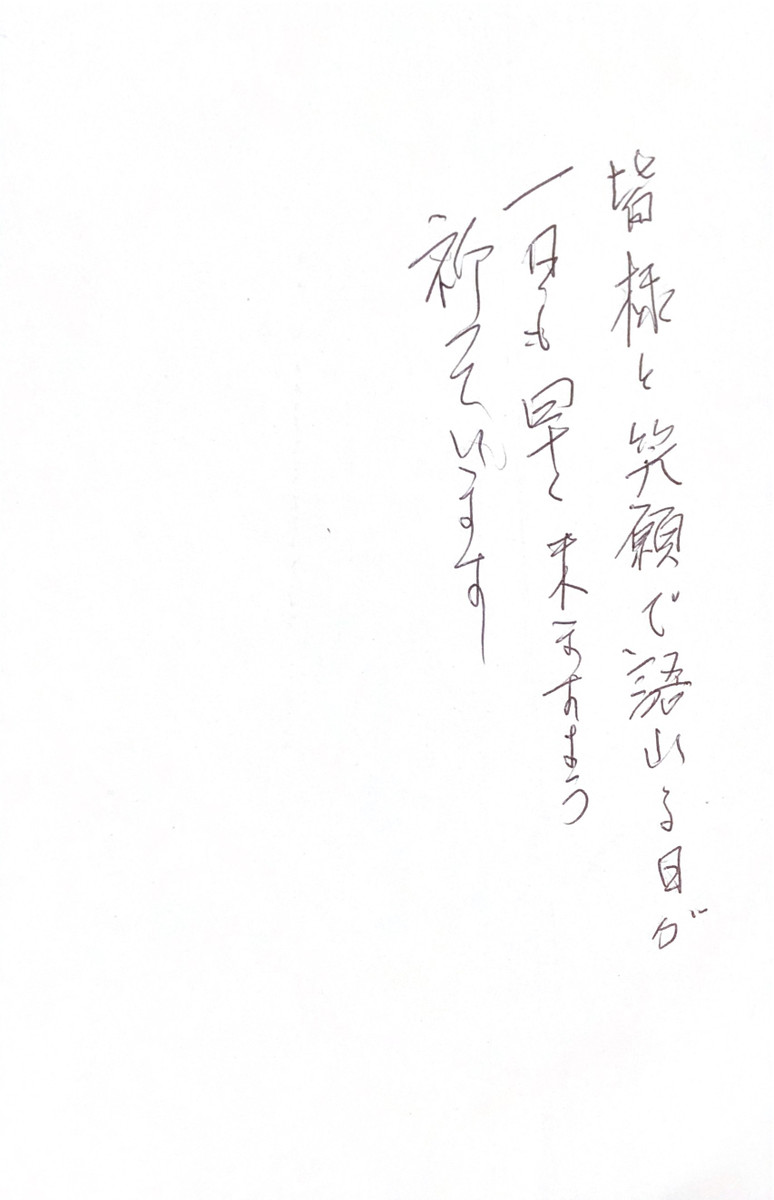 皆様と笑顔で語れる日が
一日も早く来ますよう
祈っています